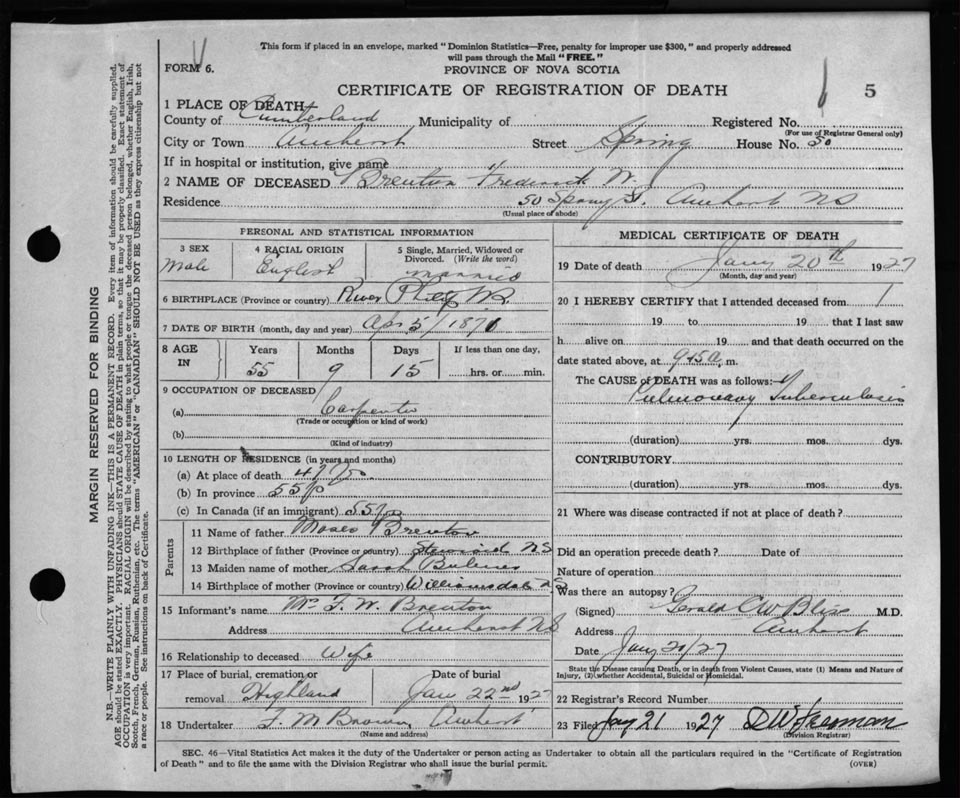 This form if placed in an envelope, marked "Dominion Statistics—Free, penalty for improper use $300," and properly addressed
will pass through the Mail "FREE."
FORM 6.
PROVINCE OF NOVA SCOTIA
CERTIFICATE OF REGISTRATION OF DEATH
5
1 PLACE OF DEATH
County of Cumberland Municipality of Registered No.
(For use of Registrar General only)
City or Town Amherst Street Spring House No. 50
If in hospital or institution, give name
2 NAME OF DECEASED Brenton Frederick W.
Residence 50 Spring St. Amherst NS
(Usual place of abode)
PERSONAL AND STATISTICAL INFORMATION
3 SEX 4 RACIAL ORIGIN 5 Single, Married, Widowed or
Divorced. (Write the word)
Male English Married
6 BIRTHPLACE (Province or country) River Philip
7 DATE OF BIRTH (month, day and year) Apr 5/1871
8 AGE IN Years Months Days If less than one day,
55 9 15 hrs. or min.
9 OCCUPATION OF DECEASED
(a) Carpenter
(Trade or occupation or kind of work)
(b)
(Kind of industry)
10 LENGTH OF RESIDENCE (in years and months)
(a) At place of death
(b) In province 55
(c) In Canada (if an immigrant) 55
Parents
11 Name of father Moses Brenton
12 Birthplace of father (Province or country) NS
13 Maiden name of mother Sarah
14 Birthplace of mother (Province or country) Williamsdale NS
15 Informant's name Mrs F. W. Brenton
Address Amherst NS
16 Relationship to deceased Wife
17 Place of burial, cremation or Date of burial
removal Highland Jan 22nd 1927
18 Undertaker F. M Brown Amherst
(Name and address)
MEDICAL CERTIFICATE OF DEATH
19 Date of death Jany 20th 1927
(Month, day and year)
20 I HEREBY CERTIFY that I attended deceased from
19 to 19 that I last saw
h alive on 19 and that death occurred on the
date stated above, at 945 a. m.
The CAUSE of DEATH was as follows:—
Pulmonary Tuberculosis
(duration) yrs. mos. dys.
CONTRIBUTORY
(duration) yrs. mos. dys.
21 Where was disease contracted if not at place of death?
Did an operation precede death? Date of
Nature of operation
Was there an autopsy?
(Signed) Gerald CW Bliss M.D.
Address Amherst
Date Jany 21/27
State the Disease causing Death, or in death from Violent Causes, state (1) Means and Nature of
Injury, (2) whether Accidental, Suicidal or Homicidal.
22 Registrar's Record Number
23 Filed Jany 21 1927 DW Freeman
(Division Registrar)
SEC. 46—Vital Statistics Act makes it the duty of the Undertaker or person acting as Undertaker to obtain all the particulars required in the "Certificate of Registration
of Death" and to file the same with the Division Registrar who shall issue the burial permit. (OVER)
MARGIN RESERVED FOR BINDING
N.B.—WRITE PLAINLY WITH UNFADING INK—THIS IS A PERMANENT RECORD. Every item of information should be carefully supplied.
AGE should be stated EXACTLY. PHYSICIANS should STATE CAUSE OF DEATH in plain terms, so that it may be properly classified. Exact statement of
OCCUPATION is very important. RACIAL ORIGIN will be described by stating to what people or tongue the deceased person belonged, whether English, Irish,
Scotch, French, German, Russian, Ruthenian, etc. The terms "AMERICAN" or "CANADIAN" SHOULD NOT BE USED as they express citizenship but not
a race or people. See instructions on back of Certificate.